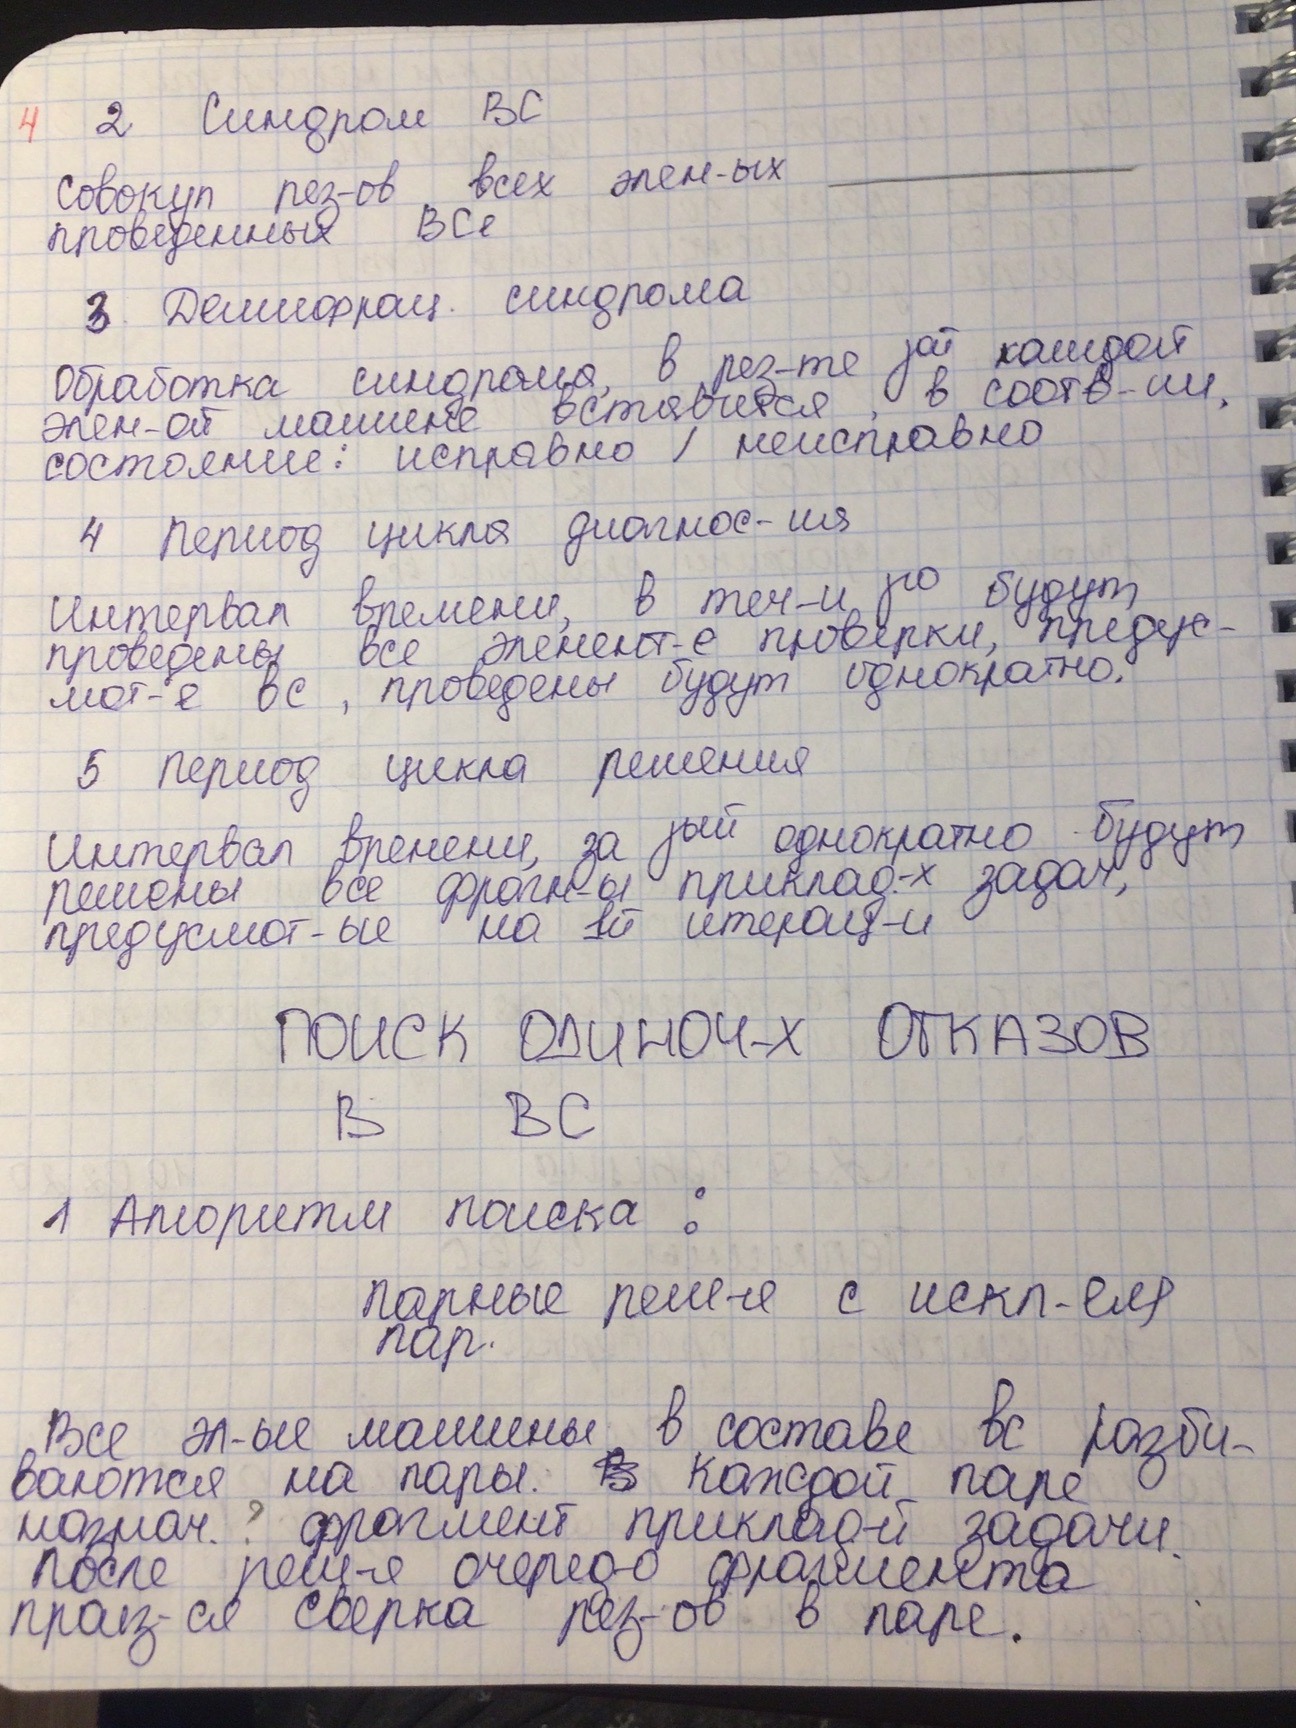 4 2 Синдром ВС
Совокуп рез-ов всех элем-ых
проведенных ВСе
3. Дешифрац. синдрома
Обработка синдрома, в рез-те jой каждой
элем-ой машине вставится, в соотв-ии,
состояние: исправно / неисправно
4 Период цикла диагнос-ия
Интервал времени, в теч-и jго будут
проведены все элемент-е проверки, предус-
мот-е ВС, проведены будут однократно.
5 Период цикла решения
Интервал времени, за jый однократно будут
решены все фрагм-ы приклад-х задач,
предусмот-ые на 1й итерац-и
ПОИСК ОДИНОЧ-Х ОТКАЗОВ
В ВС
1 Алгоритм поиска :
парные реш-е с искл-ем
пар.
Все эл-ые машины в составе вс разби-
ваются на пары. В каждой паре
назнач. ? фрагмент приклад-й задачи.
После реш-е очеред-о фрагмента
праиз-ся сверка рез-ов в паре.